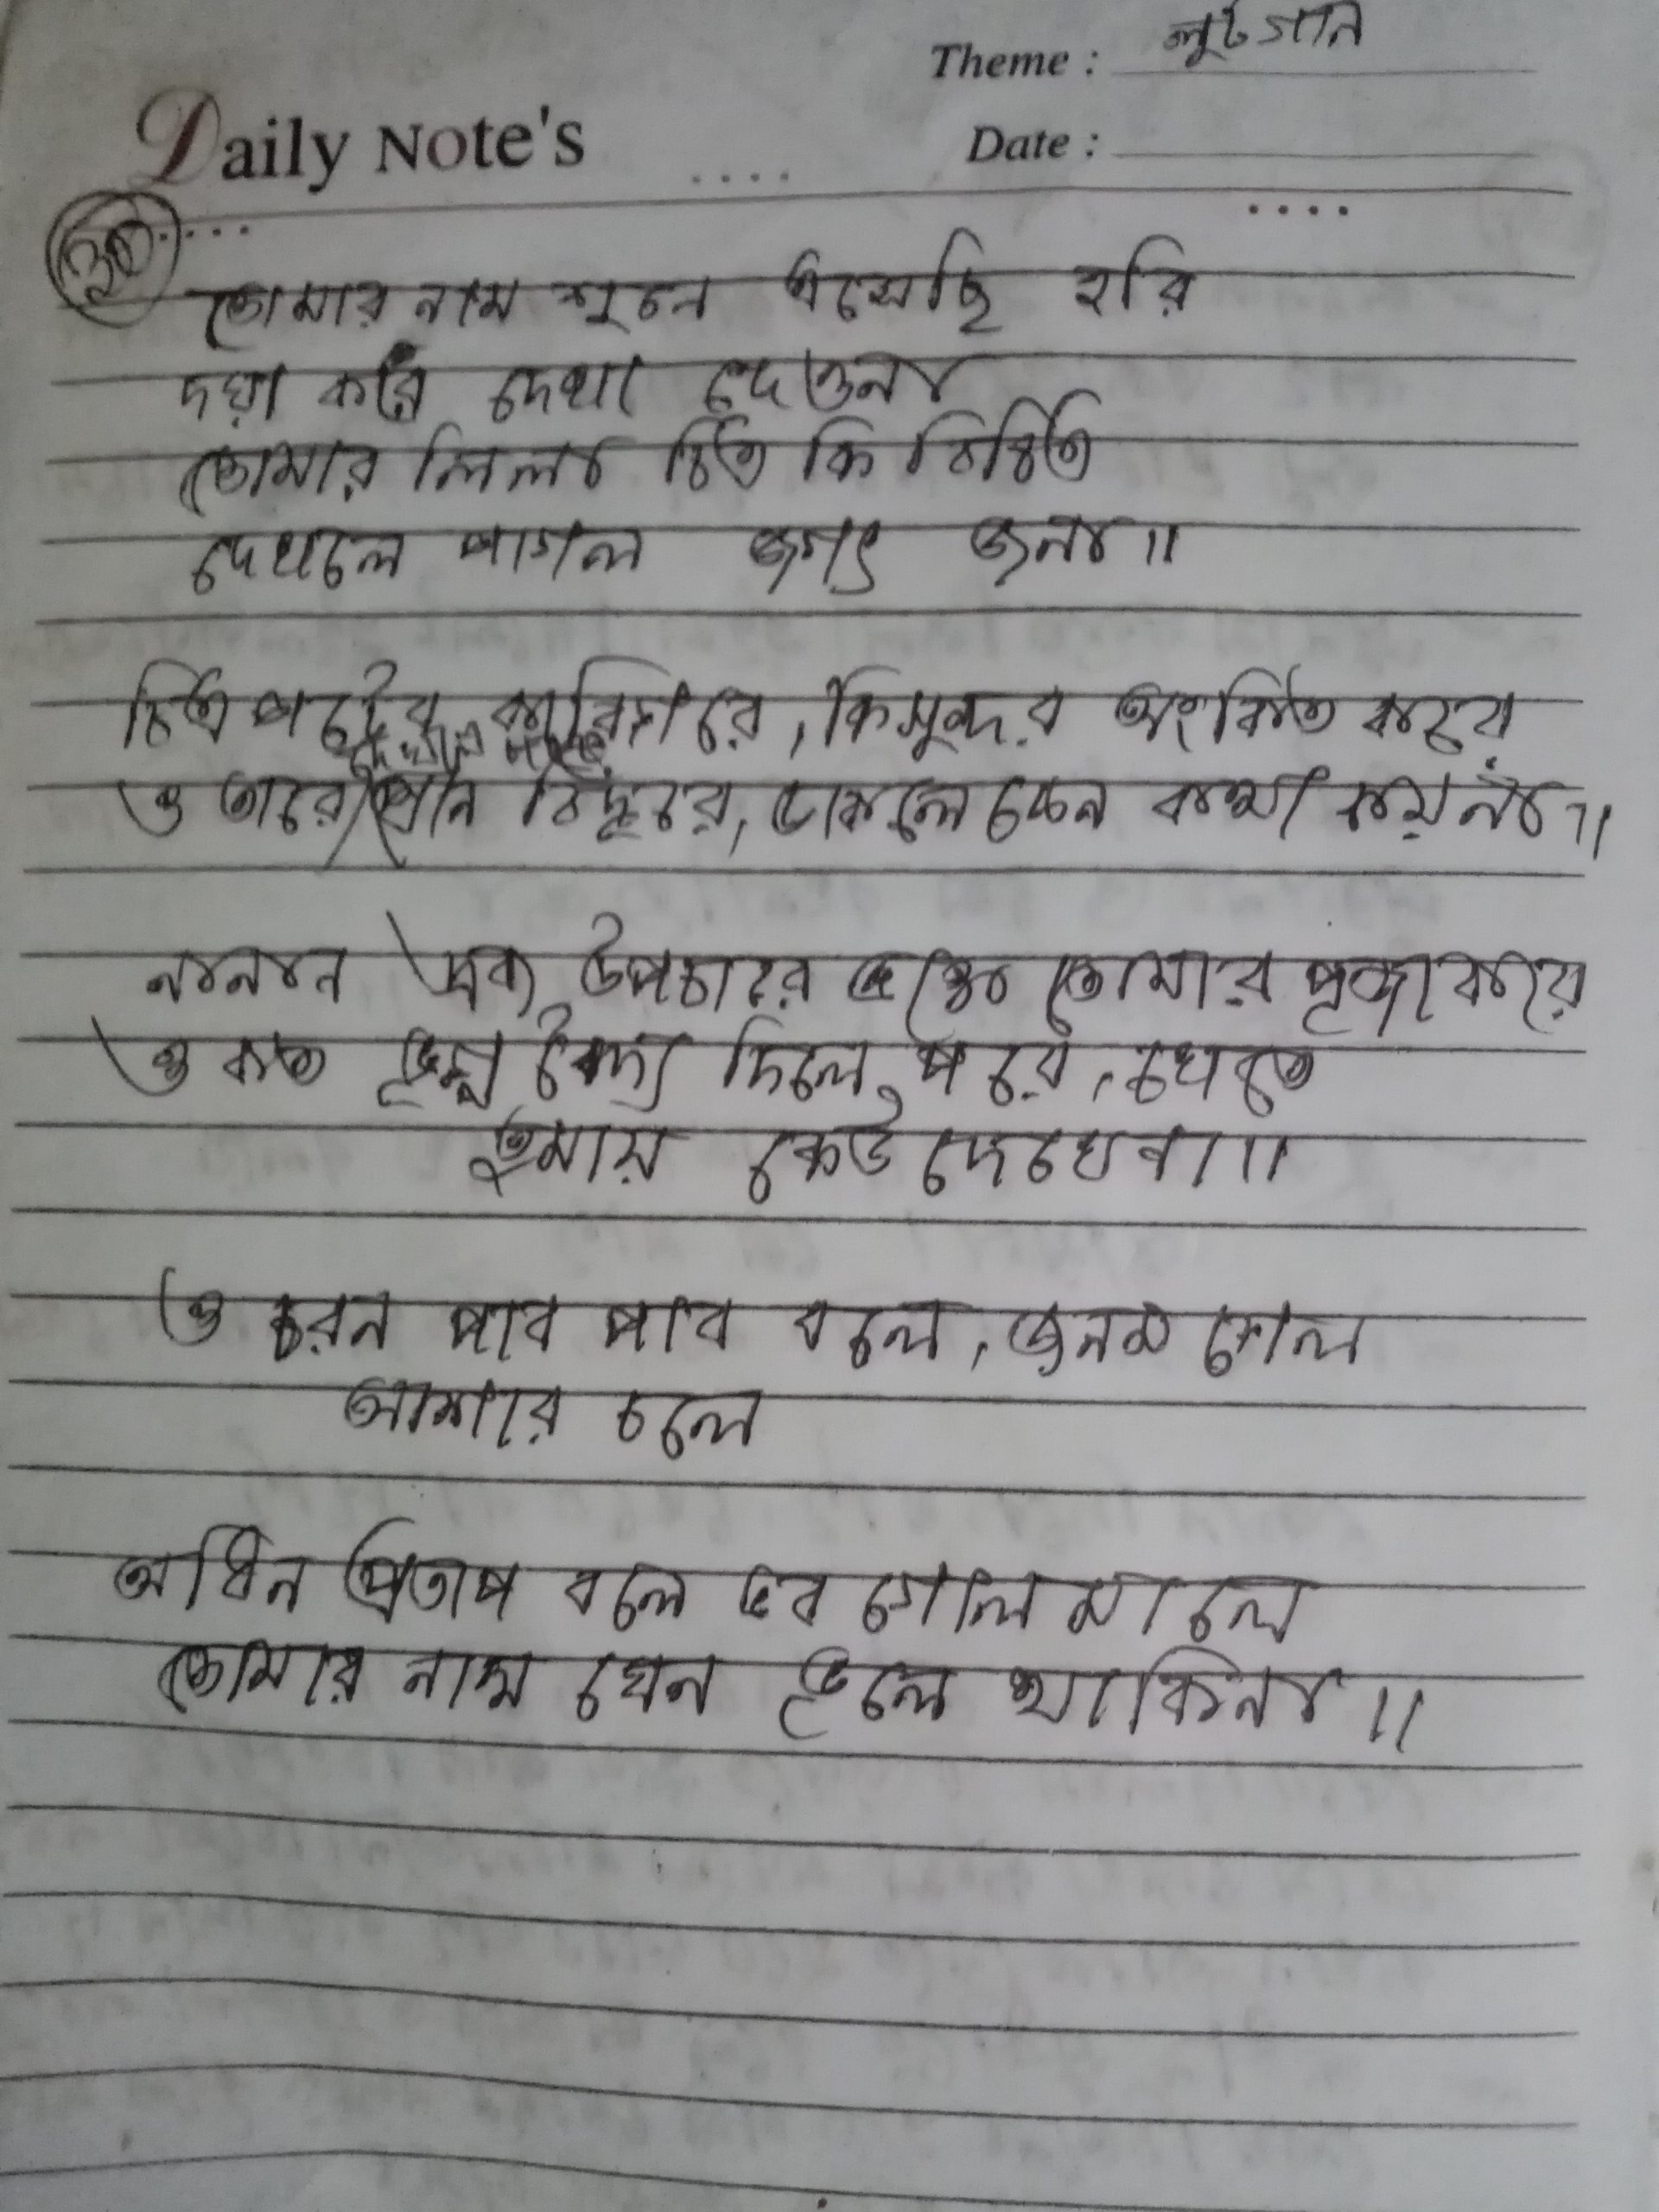 Theme : লুট গান
Daily Note's
Date :
তোমার নাম শুনে এসেছি হরি
দয়া করি দেখা দেওনা
তোমার লিলা চিত্র কি বিচিত্র
দেখলে পাগল জগৎ জনা॥
চিত্র পটের কারিগরে, কি সুন্দর অংকিত করে
ও তারে বিদুরে, ডাকলে কেন কথা কয় না॥
নানান উপচারে ভক্ত তোমার পূজা করে
ও কত দিলে পরে, খেতে
তুমায় কেউ দেখেনা॥
ও চরন পাব পাব বলে, জনম গেল
আমার চলে
অধিন প্রতাপ বলে ভব গোলমালে
তোমার নাম যেন ভুলে থাকিনা॥